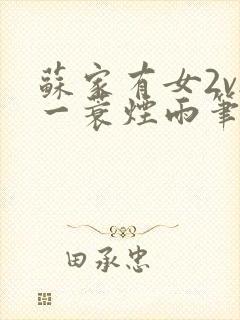 蘇家有女2v
一蓑煙雨筆
田承忠